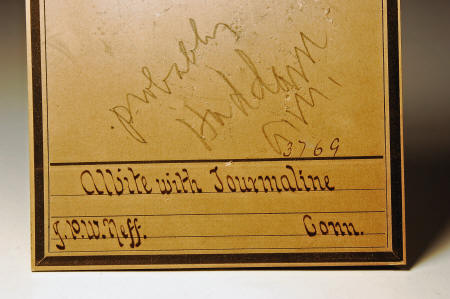 probably
Haddam
3769
Albite with Tourmaline
J.P.W. Neff. Conn.